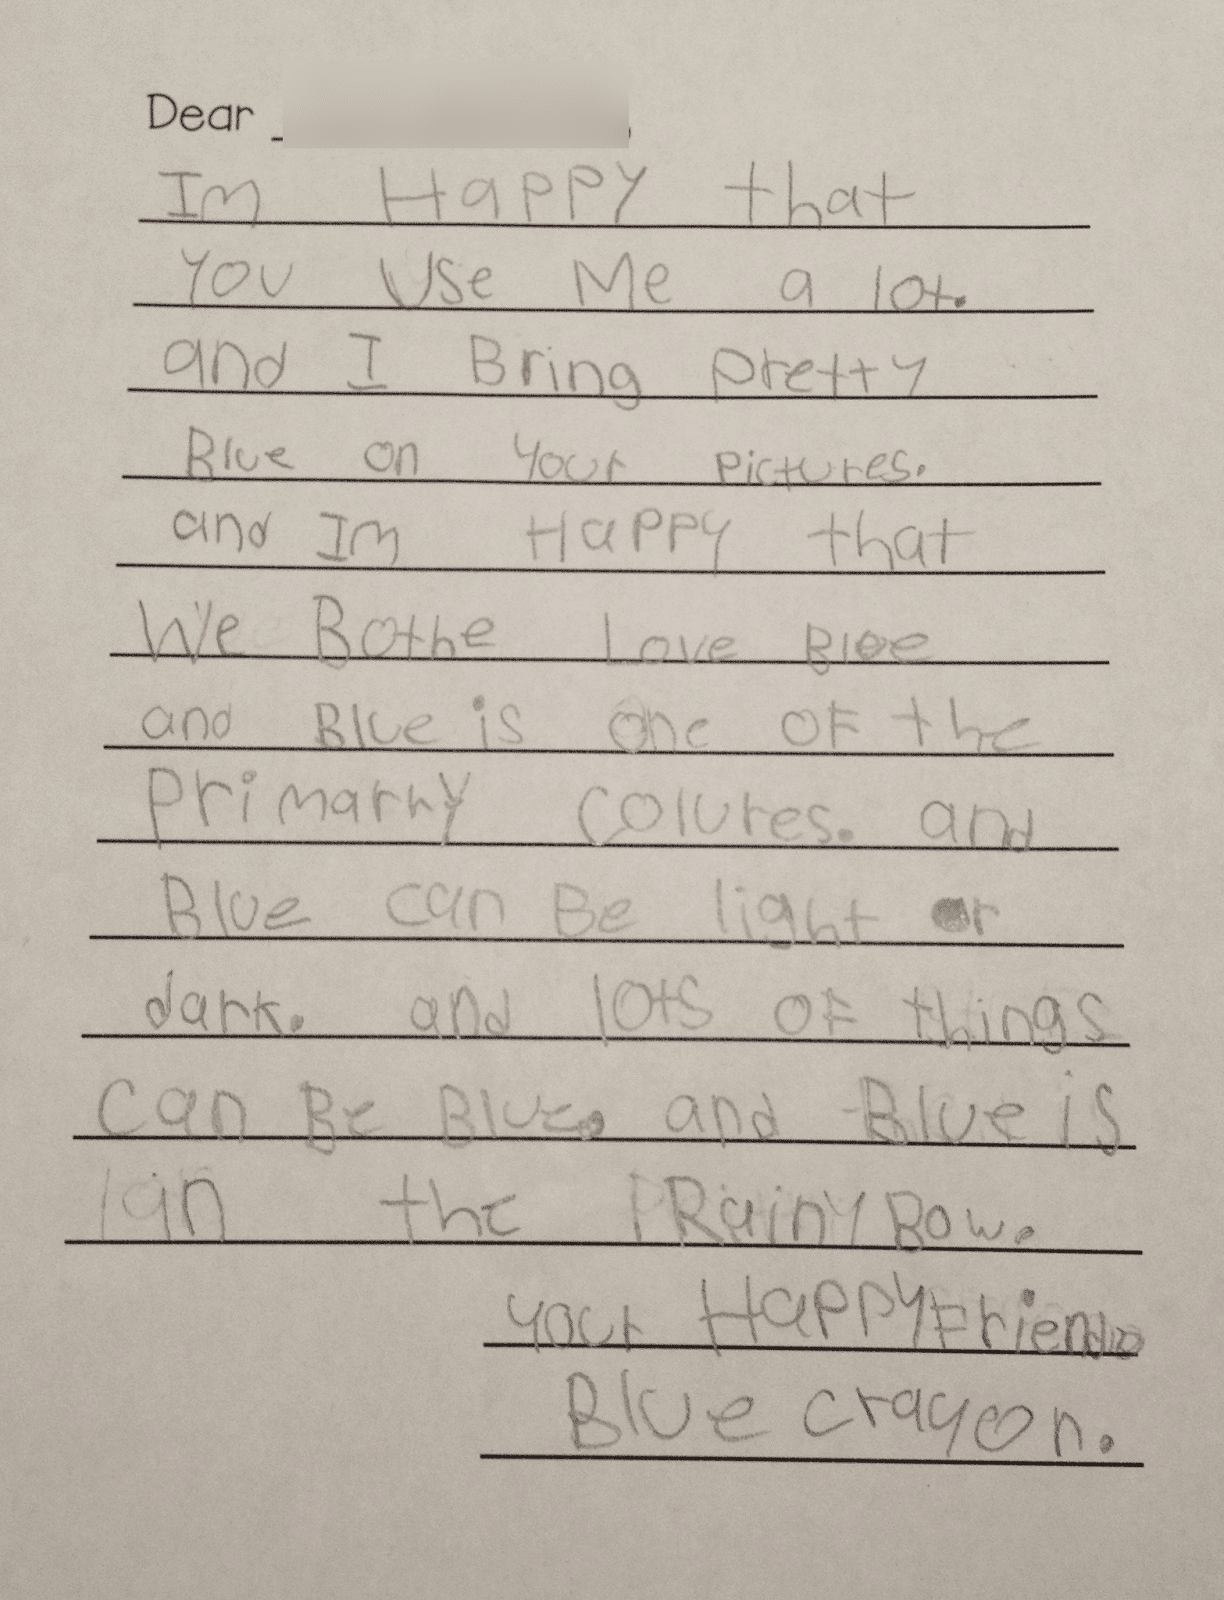 Dear
Im Happy that
you Use Me a lot.
and I Bring pretty
Blue on your pictures.
and Im Happy that
We Bothe Love Blee
and Blue is one of the
Primarry Colures. and
Blue can Be light or
dark. and lots of things
Can Be Blue. and Blue is
in the RainyBow.
your Happy Friend
Blue crayon.